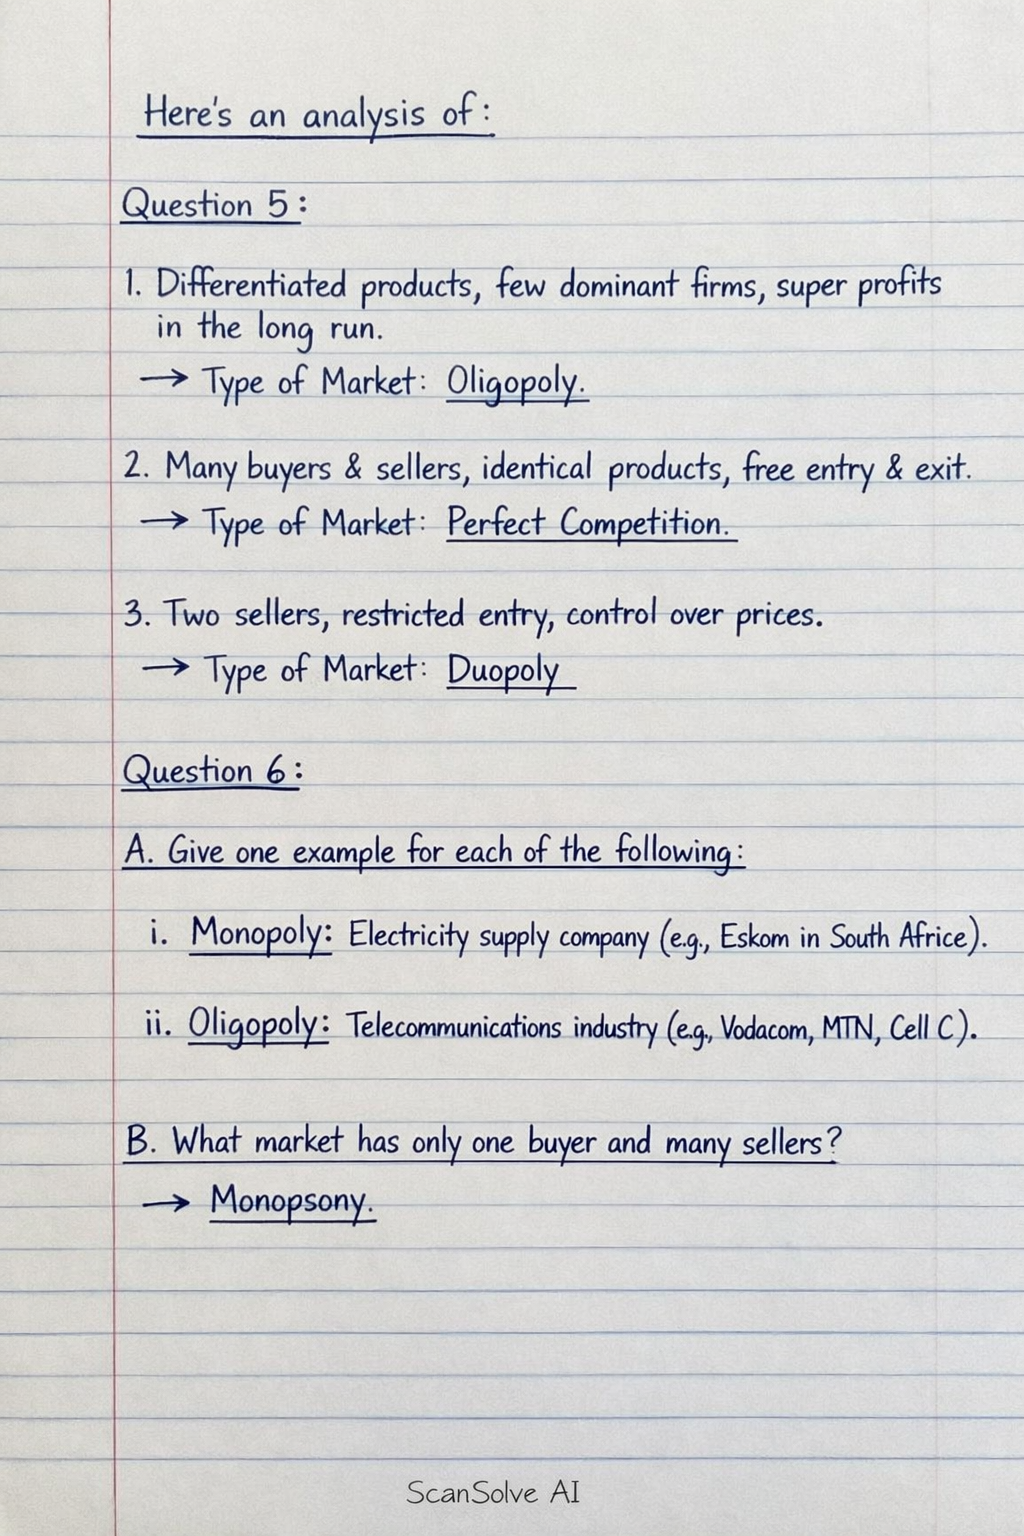 Here's an analysis of:
Question 5:
1. Differentiated products, few dominant firms, super profits
in the long run.
→ Type of Market: Oligopoly.
2. Many buyers & sellers, identical products, free entry & exit.
→ Type of Market: Perfect Competition.
3. Two sellers, restricted entry, control over prices.
→ Type of Market: Duopoly
Question 6:
A. Give one example for each of the following:
i. Monopoly: Electricity supply company (e.g., Eskom in South Africe).
ii. Oligopoly: Telecommunications industry (e.g., Vodacom, MTN, Cell C).
B. What market has only one buyer and many sellers?
→ Monopsony.
ScanSolve AI